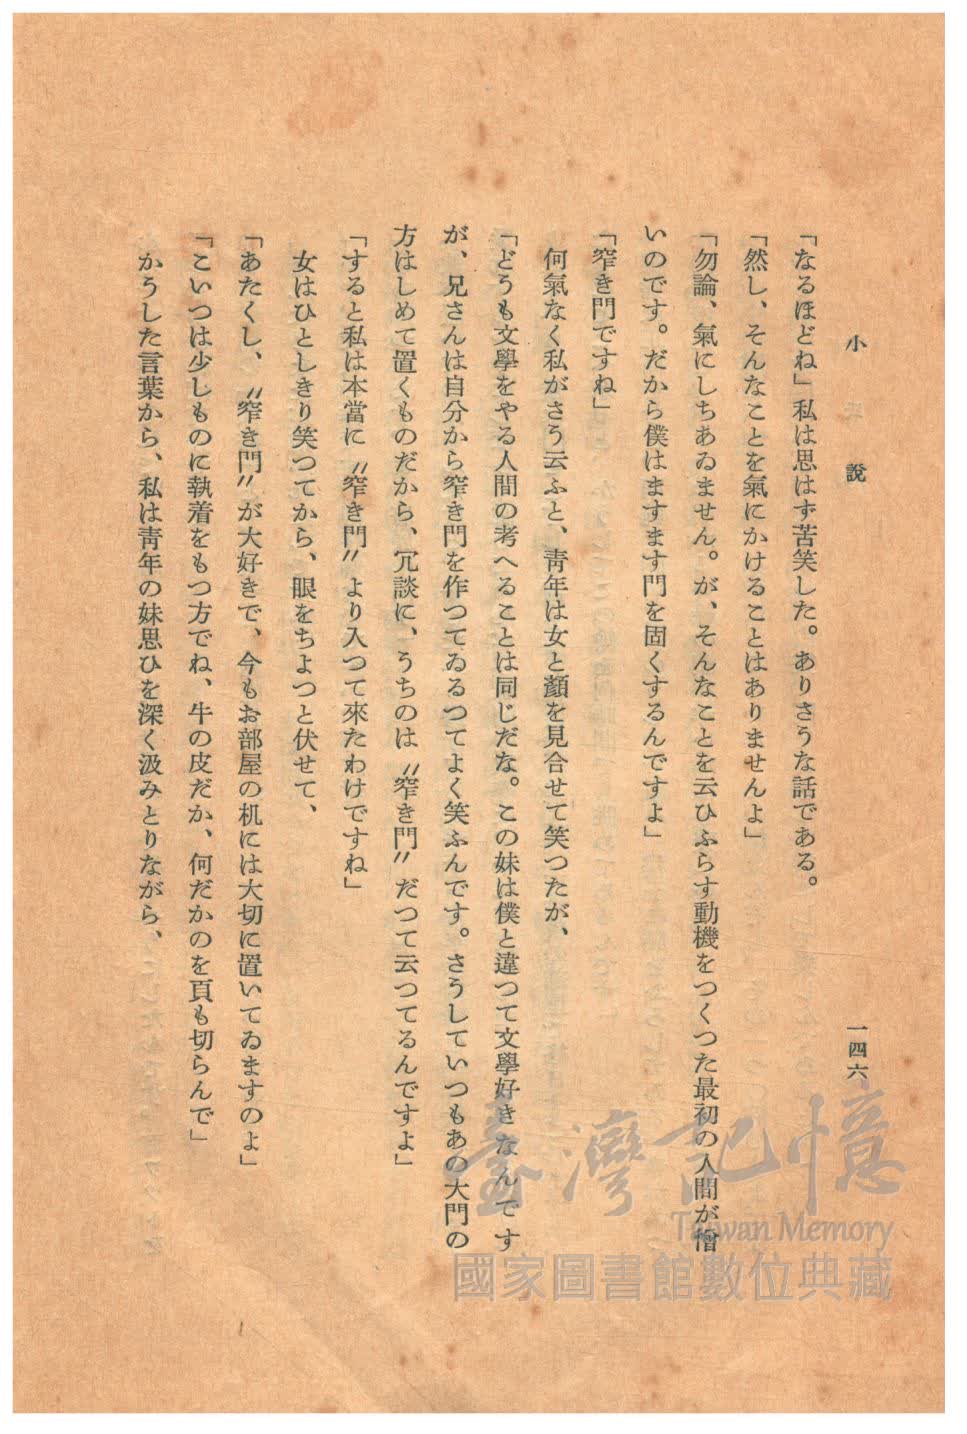 小說
一四六
「なるほどね」私は思はず苦笑した。ありさうな話である。
「然し、そんなことを氣にかけることはありませんよ」
「勿論、氣にしちあゐません。が、そんなことを云ひふらす動機をつくつた最初の人間が憎
いのです。だから僕はますます門を固くするんですよ」
「窄き門ですね」
何氣なく私がさう云ふと、靑年は女と顏を見合せて笑つたが、
「どうも文學をやる人間の考へることは同じだな。この妹は僕と違つて文學好きなんです
が、兄さんは自分から窄き門を作つてゐるつてよく笑ふんです。さうしていつもあの大門の
方はしめて置くものだから、冗談に、うちのは〝窄き門〟だつて云つてるんですよ」
「すると私は本當に〝窄き門〟より入つて來たわけですね」
女はひとしきり笑つてから、眼をちよつと伏せて、
「あたくし、〝窄き門〟が大好きで、今もお部屋の机には大切に置いてゐますのよ」
「こいつは少しものに執着をもつ方でね、牛の皮だか、何だかのを頁も切らんで」
かうした言葉から、私は靑年の妹思ひを深く汲みとりながら、
臺灣記憶
Taiwan Memory
國家圖書館數位典藏